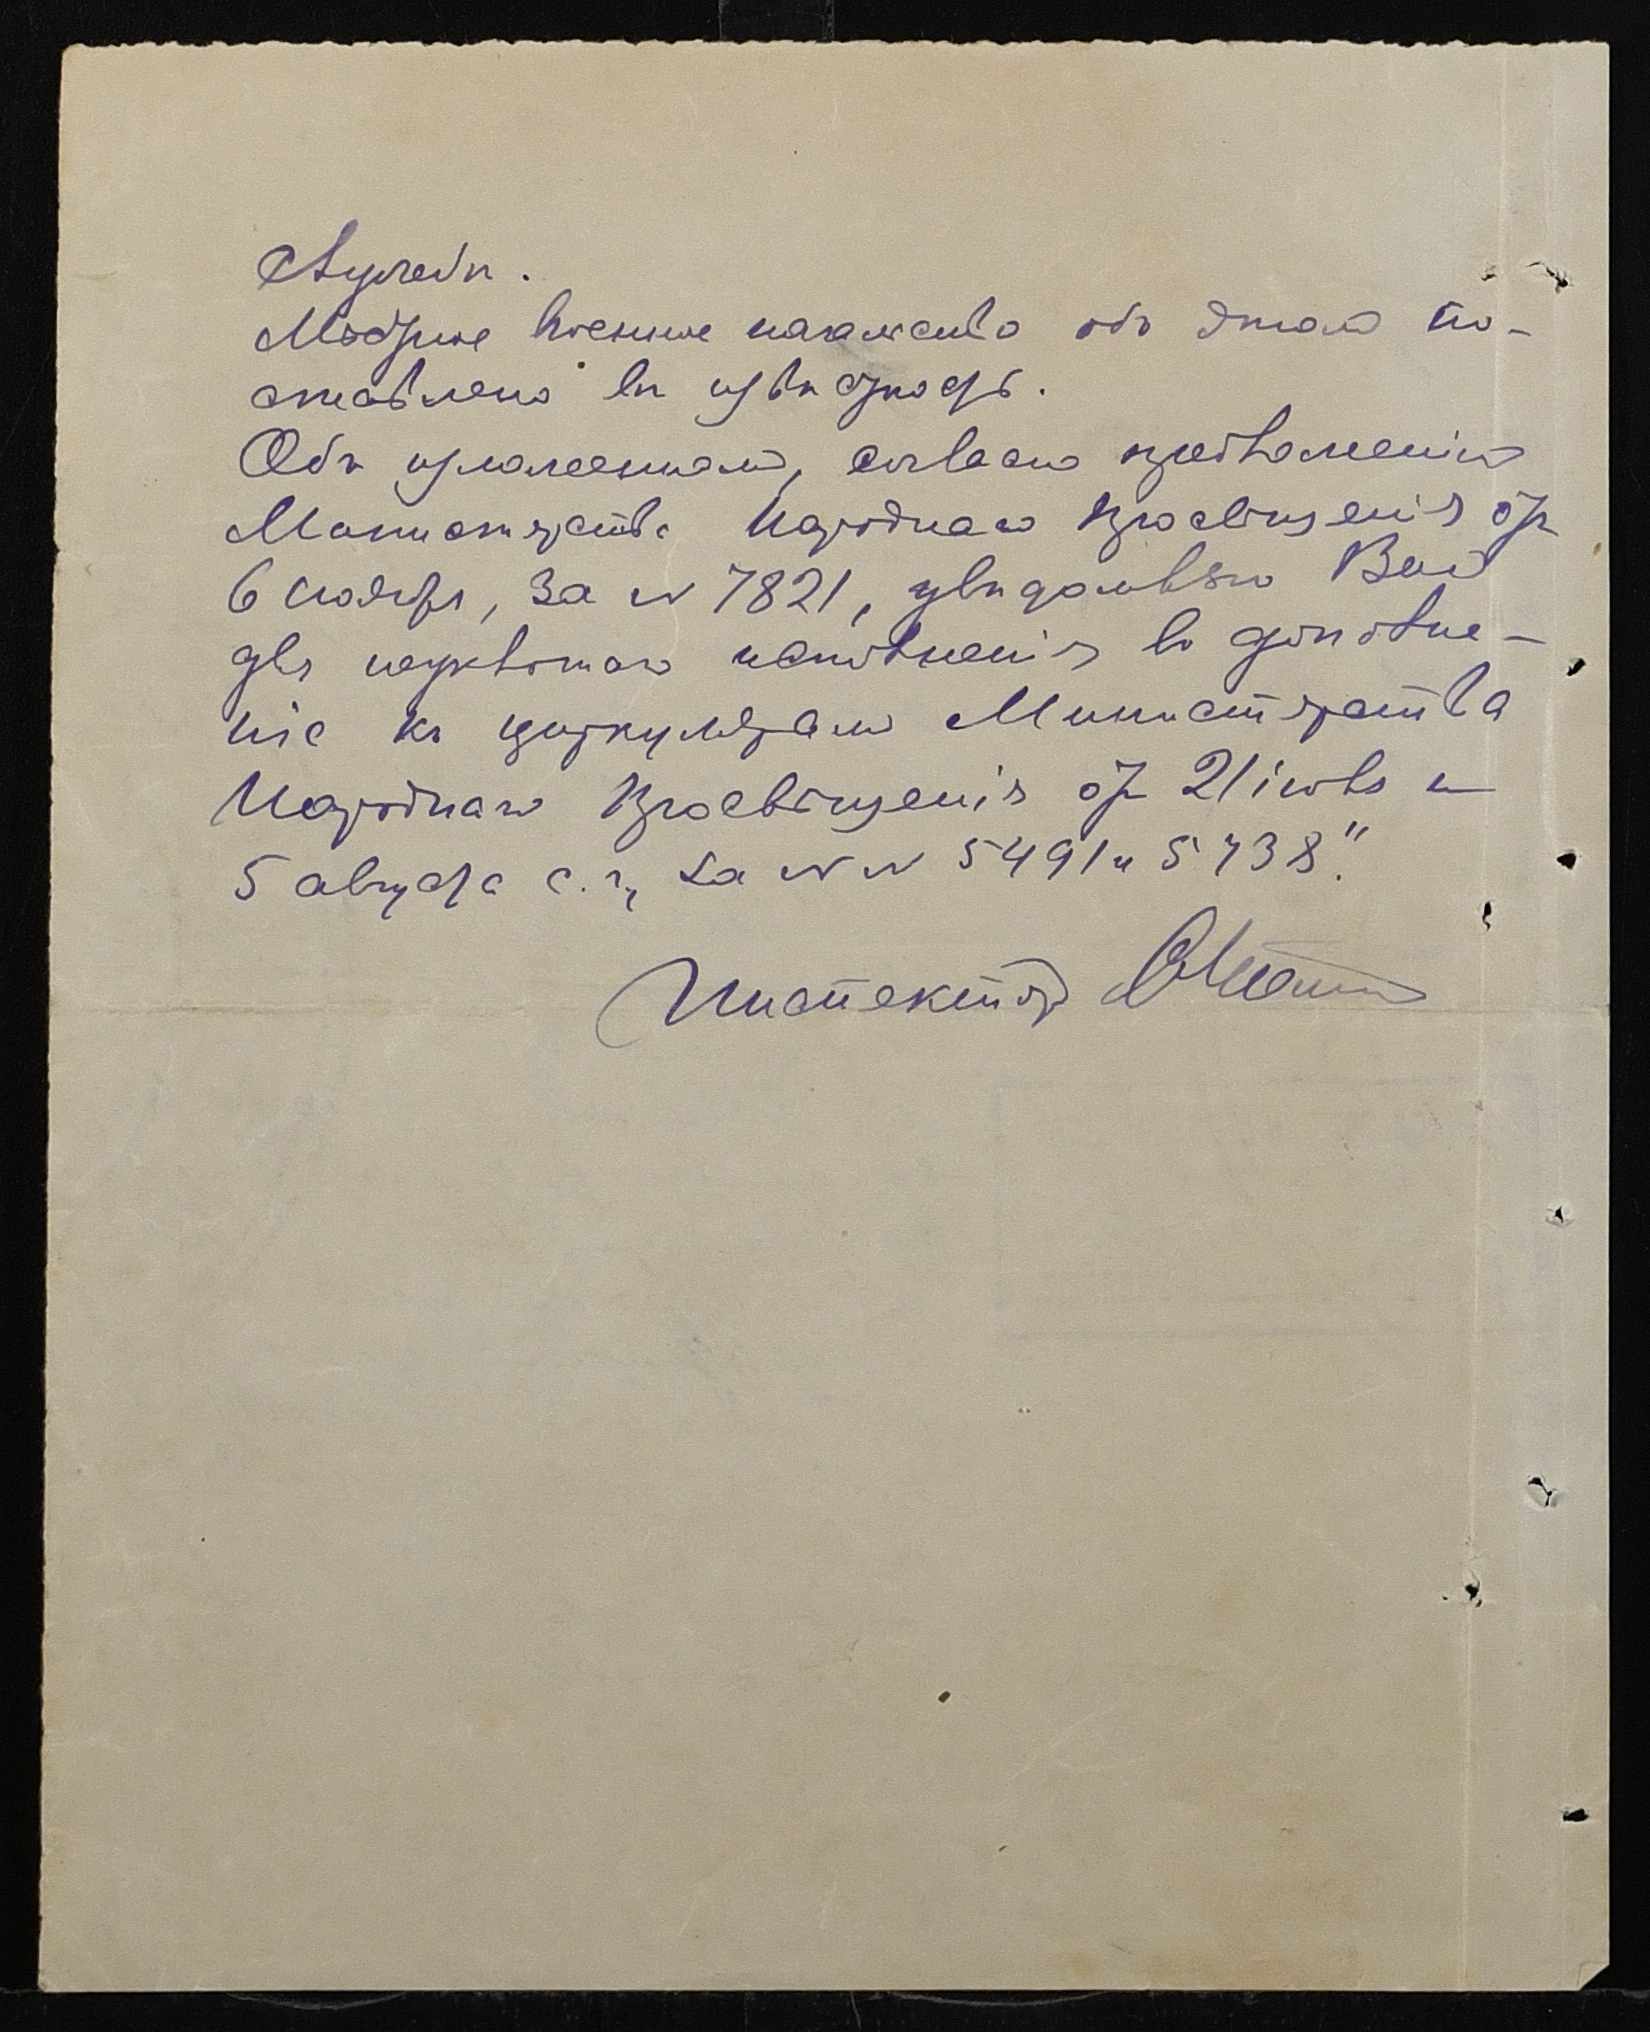 случаѣ.
Мѣстное военное начальство объ этомъ по-
ставлено въ извѣстность.
Объ изложенномъ, согласно предложенію
Министерства Народнаго Просвѣщенія отъ
6 ноября, за № 7821, увѣдомляю Васъ
для неуклоннаго исполненія въ дополне-
ніе къ циркулярамъ Министерства
Народнаго Просвѣщенія отъ 21 іюля и
5 августа с. г., за №№ 5491 и 5738".
Инспекторъ